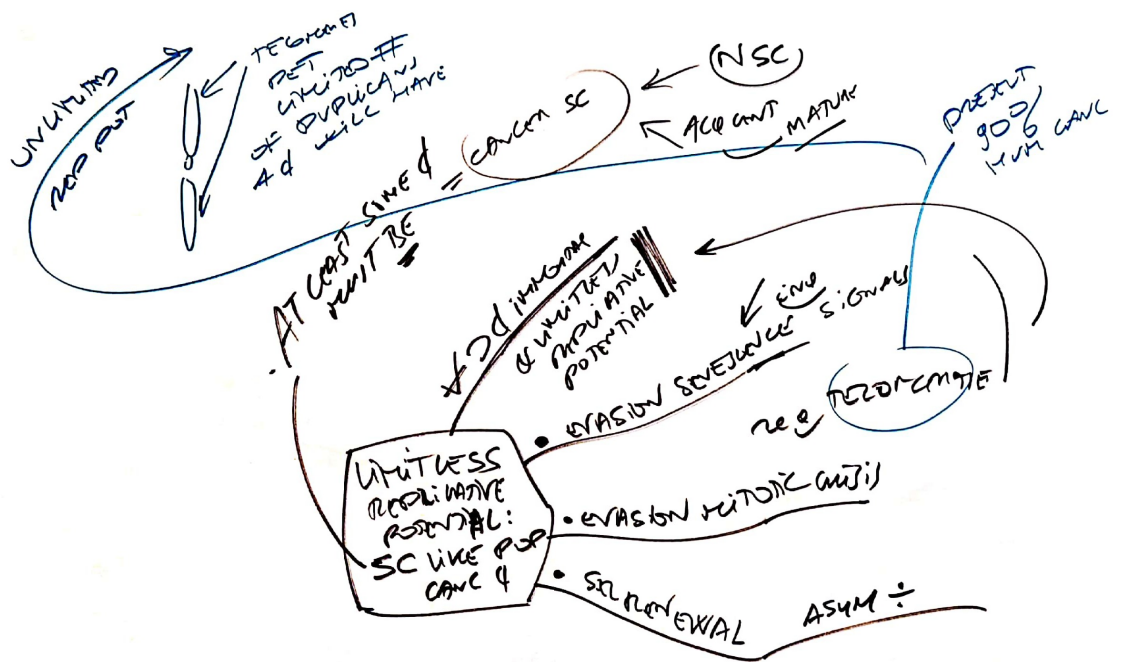 UNLIMITED
REP POT
DET
LIMITED #
OF DUPLICANS
A ¢ WILL HAVE
CANCER SC
NSC
ACQUANT MATURE
PRESENT
90%
HUM CANC
AT LEAST SOME ¢
MUST BE
IMMORTAL
& LIMITLESS
REPLIATIVE
POTENTIAL
• EVASION SENESCENCE SIGNALS
LIMITLESS
REPLICATIVE
POTENTIAL:
SC LIKE POP
CANC ¢
• EVASION MITOTIC CRISIS
• SELF RENEWAL ASYM ÷